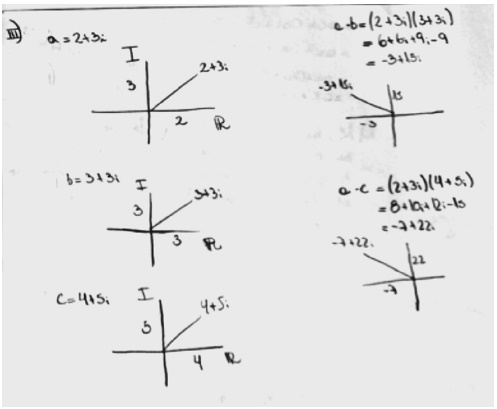 III)
a = 2+3i
I
3
2+3i
2
R
b = 3+3i
I
3
3+3i
3
R
C = 4+5i
I
5
4+5i
4
R
a·b = (2+3i)(3+3i)
= 6+6i+9i-9
= -3+15i
-3+15i
15
-3
a·c = (2+3i)(4+5i)
= 8+10i+12i-15
= -7+22i
-7+22i
22
-7